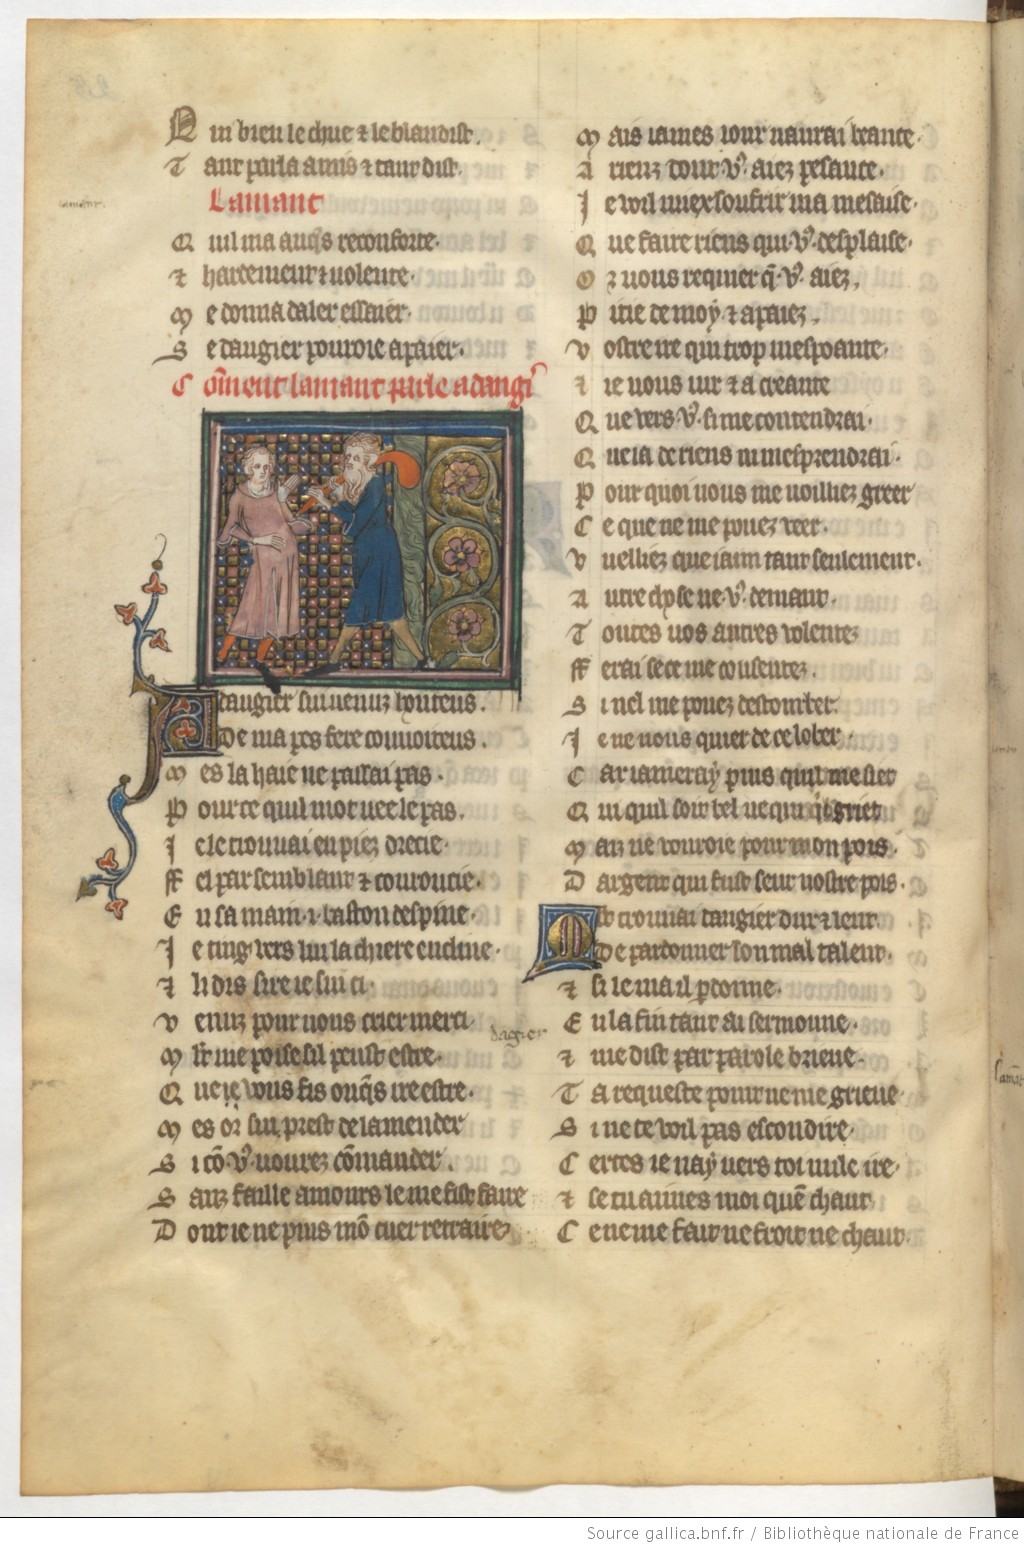 Q in brieu le chue ⁊ le blandist.
T ant parla amis ⁊ tant dist.
Lamant
Q uil ma auqs reconforte.
⁊ hardement ⁊ uolente.
M e donna daler essaier.
S e dangier pouroie apaier.
C oment lamant parle a dangr
A dangier sui uenuz honteus.
De ma pes fere conuoiteus.
M es la haie ne passai pas.
P our ce quil mot uee le pas.
J e le trouuai en piez drecie.
ff el par semblant ⁊ couroucie.
E n sa main .i. baston despine.
J e ting vers lui la chiere encline.
⁊ li dis sire ie sui ci.
V enuz pour uous crier merci
M lt me poise sil peust estre.
Q ue ie vous fis onqs irestre.
M es or sui prest de lamender
S i co vs uourez comander.
S anz faille amours le me fist faire
D ont ie ne puis mo cuer retraire
M ais iames iour naurai beance
A riens dont vs aiez pesance.
J e voil miex soufrir ma mesaise.
Q ue faire riens qui vs desplaise.
O r uous requier q vs aiez.
P itie de moy ⁊ apaiez.
V ostre ire qui trop mespoante.
⁊ ie uous iur ⁊ acreante
Q ue vers vs si me contendrai.
Q ue ia de riens ni mesprendrai.
P our quoi uous me uoilliez greer
C e que ne me pouez veer.
V uelliez que iaim tant seulement.
A utre chose ne vs demant.
T outes uos autres volentez
ff erai se ce me consentez.
S i nel me pouez destorber.
J e ne uous quier de ce lober.
C ar iameray puis quil me siet
Q ui quil soit bel ne qui qi griet
M ais ne voudroie pour mon pois.
D argent qui fust seur uostre pois.
Mlt trouuai dangier dur ⁊ lent.
De pardonner son mal talent.
⁊ si le ma il pdonne.
E n la fin tant ai sermonne.
⁊ me dist par parole brieue.
T a requeste pour ne me grieue
S i ne te voil pas escondire.
C ertes ie nay vers toi nule ire.
⁊ se tu aimes moi que chaut
C e ne me fait ne froit ne chaut.
dagier
Source gallica.bnf.fr / Bibliothèque nationale de France